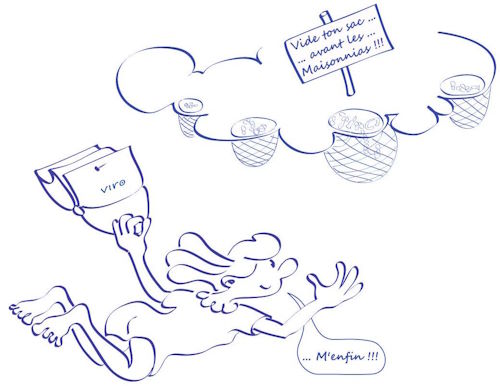 Vide ton sac ...
... avant les ...
Maisonnias !!!
viro
... M'enfin !!!